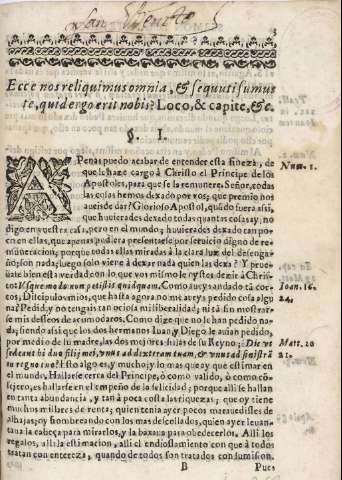 San Vicente
3
Ecce nos reliquimus omnia, & sequuti sumus
te, quid ergo erit nobis? Loco, & capite, &c.
§. I.
APenas puedo acabar de entender esta fineza, de
que le haze cargo à Christo el Principe de los
Apostoles, para que se la remunere. Señor, todas
las cosas hemos dexado por vos; que premio nos
aueis de dar? Glorioso Apostol, quãdo fuera assi,
que huuierades dexado todas quantas cosas ay, no
digo en vuestra casa, pero en el mundo; huuierades dexado tan po
co en ellas, que apenas pudiera presentarse por seruicio digno de re-
muneracion; porque todas ellas miradas à la clara luz del desenga-
ño, son nada; luego solo viene à dexar nada quien las dexa? Y prue-
uase bien esta verdad con lo que vos mismo le oystes dezir à Chris-
to: Vsque modo non petistis quidquam. Como aueys andado tã cor-
tos, Dicipulos mios, que hasta agora no me aueys pedido cosa algu
na? Pedid, y no tengais tan ociosa mi liberalidad; ni tã sin mostrar-
se mis deseos de acomodaros. Como dize que no le han pedido na-
da; siendo assi que los dos hermanos Iuan, y Diego le auian pedido,
por medio de su madre, las dos mejores sillas de su Reyno; Dic vt
sedeant hi duo filij mei, vnus ad dexteram tuam, & vnus ad sinistrã
in regno tuo? Esto algo es, y mucho; y lo mas que ay que estimar en
el mundo, Hallarse cerca del Principe, ò como valido, ò como cõ-
sejero, es hallarse en el empeño de la felicidad; porque alli se hallan
en tanta abundancia, y tan à poca costa las riquezas; que oy tiene
muchos millares de renta, quien tenia ayer pocos marauedisses de
alhajas; oy hombreando con los mas descollados, quien ayer leuan-
taua la cabeça para mirarlos, y la baxaua para obedecerlos. Alli los
regalos, alli la estimacion, alli el endiosamiento con que à todos
tratan con entereza, quando de todos son tratados con sumision.
B
Pues
Num. 1.
Ioan. 16.
24.
Matt. 20
21.